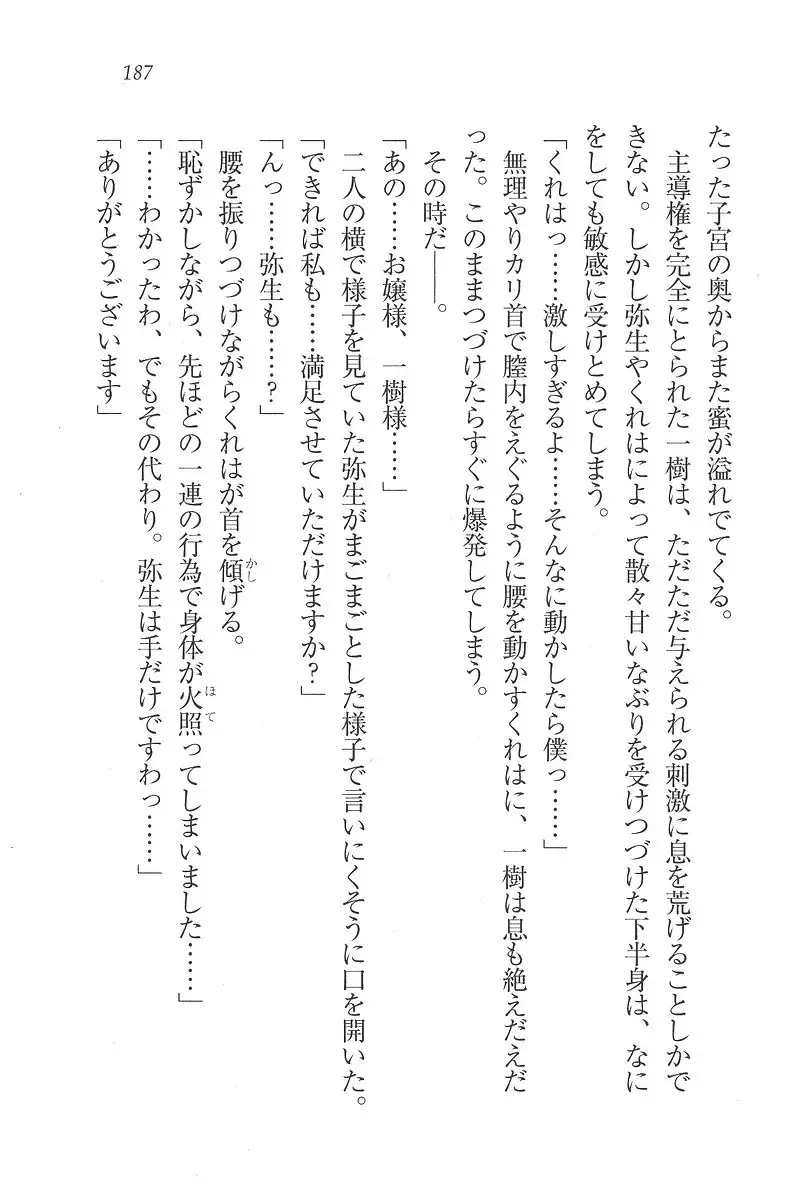 187
たった子宮の奥からまた蜜が溢れでてくる。
主導権を完全にとられた一樹は、ただただ与えられる刺激に息を荒げることしかで
きない。しかし弥生やくれはによって散々甘いなぶりを受けつづけた下半身は、なに
をしても敏感に受けとめてしまう。
「くれはっ……激しすぎるよ……そんなに動かしたら僕っ……」
無理やりカリ首で膣内をえぐるように腰を動かすくれはに、一樹は息も絶えだえだ
った。このままつづけたらすぐに爆発してしまう。
その時だ――。
「あの……お嬢様、一樹様……」
二人の横で様子を見ていた弥生がまごまごとした様子で言いにくそうに口を開いた。
「できれば私も……満足させていただけますか?」
「んっ……弥生も……?」
腰を振りつづけながらくれはが首を傾かしげる。
「恥ずかしながら、先ほどの一連の行為で身体が火照ほてってしまいました……」
「……わかったわ、でもその代わり。弥生は手だけですわっ……」
「ありがとうございます」